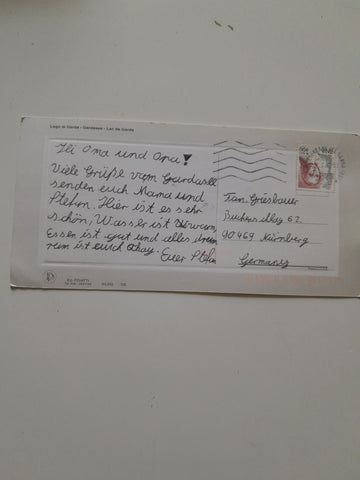 Lago di Garda - Gardasee - Lac de Garda
Hi Oma und Opa!
Viele Grüße vom Gardasee
senden euch Mama und
Stefan. Hier ist es sehr
schön, Wasser ist warm,
Essen ist gut und alles
rum ist auch Okay.
Euer Stefan
Fam. Griesbauer
62
90469 Nürnberg
Germany